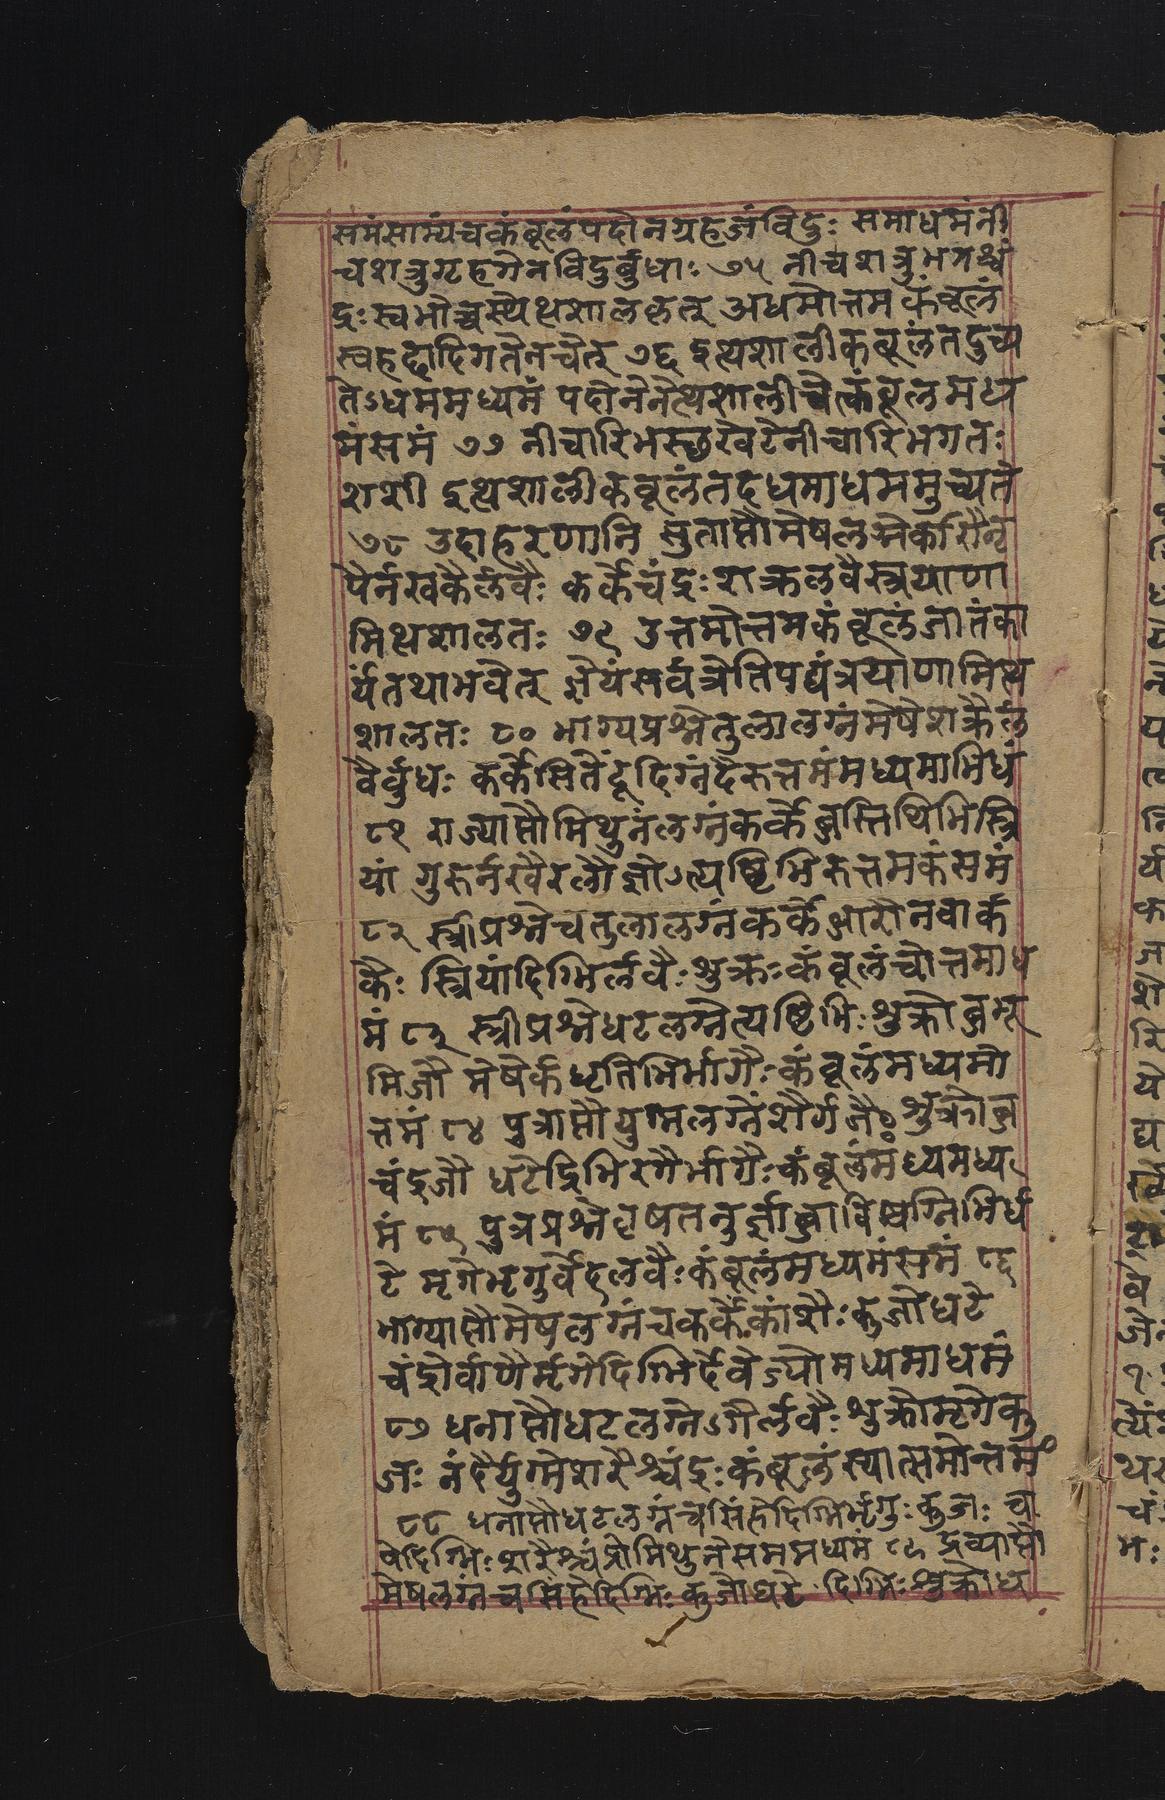 समंसाम्यंचकंबूलंपदोनग्रहजंविदुः समाधमंनी
चशत्रुगृहगेनविदुर्बुधाः ७५ नीचशत्रुभगश्चं
द्रःस्वभोच्चस्थेत्थशालकृत् अधमोत्तमकंबूलं
स्वहद्दादिगतेनचेत् ७६ इत्थशालीकंबूलंतदुच्य
तेऽधममध्यमं पदोनेनेत्थशालीचेत्कंबूलमध
मंसमं ७७ नीचारिभस्थखेटेनीचारिभगतः
शशी इत्थशालीकंबूलंतदधमाधममुच्यते
७८ उदाहरणानि सुताप्तौमेषलग्नेर्कारौनृ
पैर्नखकैर्लवैः कर्केचंद्रः शक्रलवैस्त्रयाणा
मित्थशालतः ७९ उत्तमोत्तमकंबूलंजातंका
र्यतथाभवेत् ज्ञेयंसर्वत्रेतिपद्यंत्रयाणामित्थ
शालतः ८० भाग्यप्रश्नेतुलालग्नंमेषेशक्रैर्ल
वैर्बुधः कर्केसितेंदूदिग्नंदैरुत्तमंमध्यमाभिधं
८१ राज्याप्तौमिथुनंलग्नंकर्केब्जस्तिथिभिस्त्रि
यां गुरुर्नखैरलौज्ञोऽत्यष्टिभिरुत्तमकंसमं
८२ स्त्रीप्रश्नेचतुलालग्नंकर्केआरोनवार्क
कैः स्त्रियांदिग्भिर्लवैः शुक्रः कंबूलंचोत्तमाध
मं ८३ स्त्रीप्रश्नेधटलग्नेत्यष्टिभिः शुक्रोब्जभू
मिजौ मेषेर्कधृतिभिर्भागैः कंबूलंमध्यमो
त्तमं ८४ पुत्राप्तौयुग्मलग्नेंशैर्गजैः शुक्रोब्ज
चंद्रजौ धटेद्रिभिरगैर्भागैः कंबूलंमध्यमध्य
मं ८५ पुत्रप्रश्नेवृषतनुर्ज्ञाब्जाविष्वग्निभिर्ध
टे मृगेभृगुर्वेदलवैः कंबूलंमध्यमंसमं ८६
भाग्याप्तौमेषलग्नंचकर्केकांशैः कुजोधटे
चंद्रोर्बाणैर्मृगेदिग्भिर्देवेज्योमध्यमाधमं
८७ धनाप्तौधटलग्नेऽगैर्लवैः शुक्रोमृगेकु
जः नंदैर्युग्मेशरैश्चंद्रः कंबूलंस्यात्समोत्तमं
८८ धनाप्तौधटलग्नंचसिंहेदिग्भिर्भृगुः कुजः चा
पेदिग्भिः शरैश्चंद्रोमिथुनेसममध्यमं ८९ द्रव्याप्तौ
मेषलग्नंचसिंहेदिग्भिः कुजोधटे दिग्भिः शुक्रोध